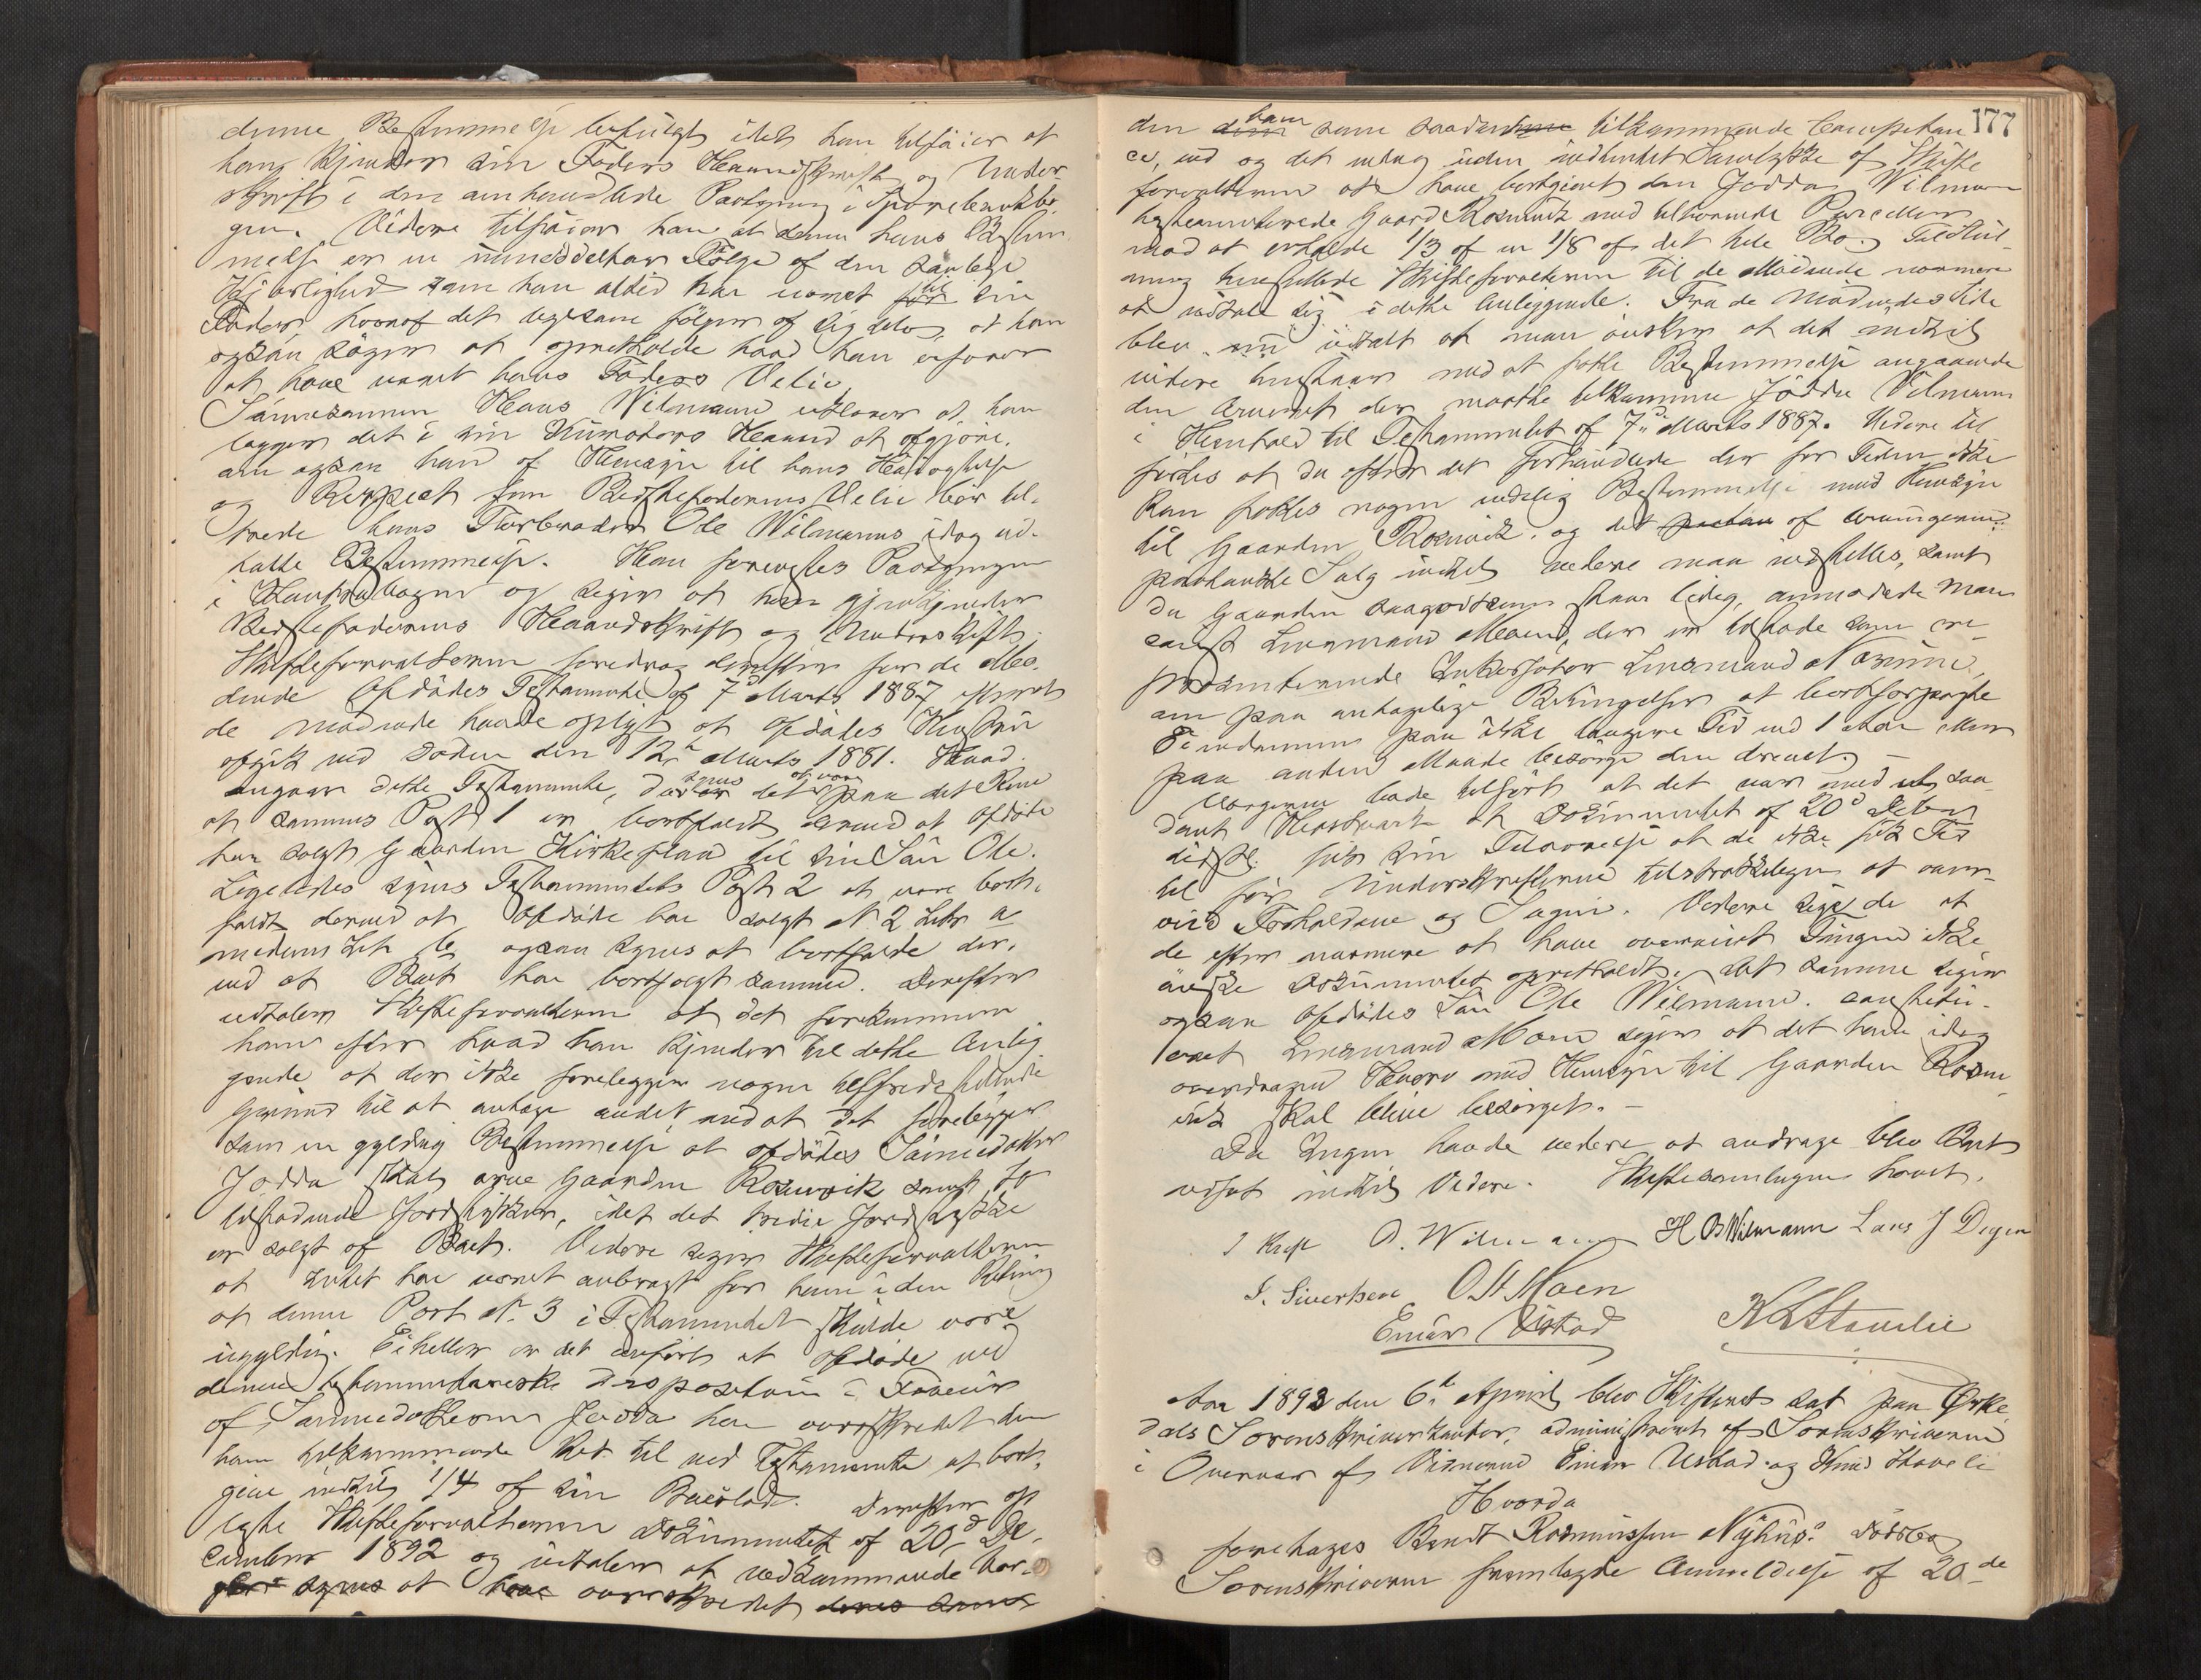 denne Bestemmelse befulgt idet han tilføier at
hans kjender sin Faders Haandskrift og Under-
skrift i den omhandlede Paategning i Sparebankbo-
gen. Videre tilføier han at denne hans Bestem
melse er en umiddelbar Følge af den sønlige
Kjærlighed som han altid har næret til sin
Fader, hvoraf det ligesom følger af sig selv, at han
ogsaa søger at opretholde hvad han erfarer
at have været hans Faders Villie.
Sønnesønnen Hans Wilmann udtaler at han
lægger det i sin Kurators Haand at afgjøre,
om ogsaa han af Hensyn til hans Høiagtelse
og Respect for Bedstefaderens Villie bør til-
træde hans Farbroder Ole Wilmanns idag ud-
talte Bestemmelse. Han forevistes Paategningen
i Contrabogen og siger at han gjenkjender
Bedstefaderens Haandskrift og Underskrift.
Skifteforvalteren foredrog derefter for de Mø-
dende Afdødes Testamente af 7de Marts 1887 efterat
de mødende havde oplyst at Afdødes Hustru
afgik ved Døden den 12te Marts 1881. Hvad
angaar dette Testamente, da synes det at være paa det Rene
at sammes Post 1 er bortfaldt derved at Afdøde
har solgt Gaarden Kirkeflaa til sin Søn Ole.
Ligeledes synes Testamentets Post 2 at være bort-
faldt derved at Afdøde har solgt N 2 Litr a
medens Litr b, ogsaa synes at bortfalde der-
ved at Boet har bortsolgt samme. Derefter
udtaler Skifteforvalteren at det forekommer
ham efter hvad han kjender til dette Anlig
gende, at der ikke foreligger nogen tilfredsstillende
Grund til at antage andet end at det foreligger
som en gyldig Bestemmelse at afdødes Sønnedatter
Jodda skal arve Gaarden Rosmvik samt to
tilstødende Jordstykker, idet det tredie Jordstykke
er solgt af Boet. Videre siger Skifteforvalteren
at Intet har været anbragt for ham i den Retning
at denne Post N. 3 i Testamentet skulde være
ugyldig. Eiheller er det anført at Afdøde ved
denne testamentariske Disposition i Faveur
af Sønnedatteren Jodda har overskredet den
ham tilkommende Ret til ved Testamente at bort-
give indtil 1/4 af sin Boeslod. Derefter op
læste Skifteforvalteren Dokumentet af 20de De-
cember 1892 og udtaler at vedkommende Vær-
ger synes at have overskredet deres
177
den ham som saadan tilkommende Competan
ce, ved og det endog uden indhentet Samtykke af Skifte
forvalteren at have bortgivet den Jodda Wilmann
testamenterede Gaard Rosmvik med tilhørende Parceller
mod at erholde 1/3 af en 1/8 af det hele Bo. Til Slut-
ning henstillede Skifteforvalteren til de Mødende nærmere
at udtale sig i dette Anliggende. Fra de Mødendes Side
blev udtalt at man ønsker at det indtil
videre henstaar med at fatte Bestemmelse angaaende
den Arveret der maatte tilkomme Jodda Vilmann
i Henhold til Testamentet af 7de Marts 1887. Videre til
føies at da efter det Forhandlede der for Tiden ikke
kan fattes nogen endelig Bestemmelse med Hensyn
til Gaarden Rosmvik, og det af Arvingerne
paatænkte Salg indtil videre maa indstilles, samt
da Gaarden saagodtsom staar ledig, anmodede man
const Lensmand Moen, der er tilstede som re-
præsenterende Inkassator Lensmand
om paa antagelige Betingelser at bortforpagte
Eiendommen paa ikke længere Tid end 1 Aar eller
paa anden Maade besørge den drevet. -
Værgerne lode tilført at det var med et saa-
dant Hastværk at Dokumentet af 20de Decbr
sidstl. fik sin Tilværelse at de ikke fik Tid
til før Underskrifterne tilstrækkeligen at over-
veie Forholdene og Sagen. Videre siger de at
de efter nærmere at have overveiet Tingen ikke
ønske Dokumentet opretholdt. Det samme siger
ogsaa Afdødes Søn Ole Wilmann. constitu-
eret Lensmand Moen siger at det ham idag
overdragne Hverv med Hensyn til Gaarden Rosm
vik skal blive besørget. -
Da Ingen havde videre at andrage blev Boet
udsat indtil Videre. Skiftesamlingen hævet.
O. Wilmann H B Wilmann Lars J Degen
I. Sivertsen O St Moen
Einar Ustad
Aar 1893 den 6te April blev Skifteret sat paa Ørke
dals Sorenskriverkontor, administreret af Sorenskriveren
i Overvær af Vidnerne Einar Ustad og Knud Skavli
Hvorda
foretages Bendt Rasmussen Nyhus's Dødsbo
Sorenskriveren fremlagde Anmeldelse af 20de